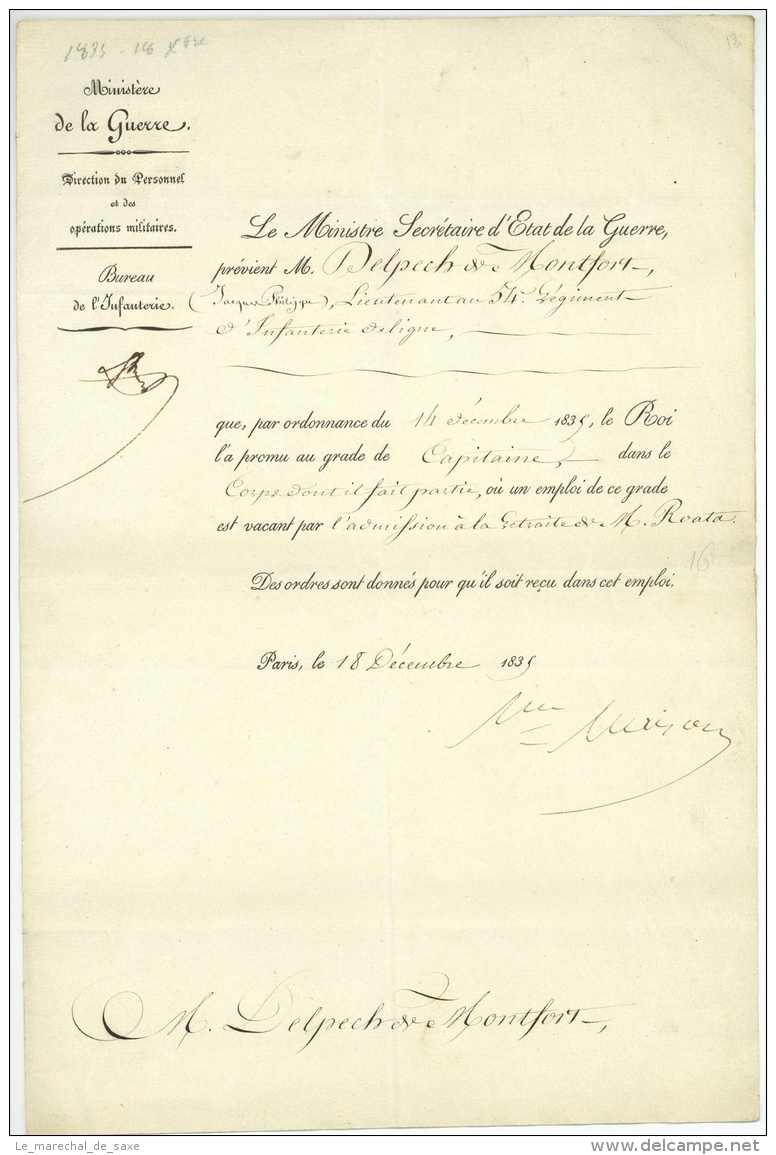 1835 - 18 Xbre
13
Ministère
de la Guerre.
Direction du Personnel
et des
opérations militaires.
Bureau
de l'Infanterie.
Le Ministre Secrétaire d'Etat de la Guerre,
prévient M. Delpech de Montfort,
(Jacques Philippe), Lieutenant au 54e. Régiment
d'Infanterie de ligne,
que, par ordonnance du 14 décembre 1835, le Roi
l'a promu au grade de Capitaine, dans le
Corps dont il fait partie, où un emploi de ce grade
est vacant par l'admission à la retraite de M. Roata.
16
Des ordres sont donnés pour qu'il soit reçu dans cet emploi.
Paris, le 18 Décembre 1835
Mal Maison
M. Delpech de Montfort,
Le_marechal_de_saxe
delcampe.net